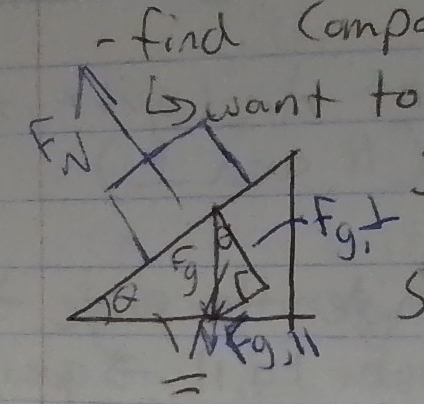 - find Compo
↳ want to
F_N
F_g θ F_g,⊥
θ
S
F_g,||